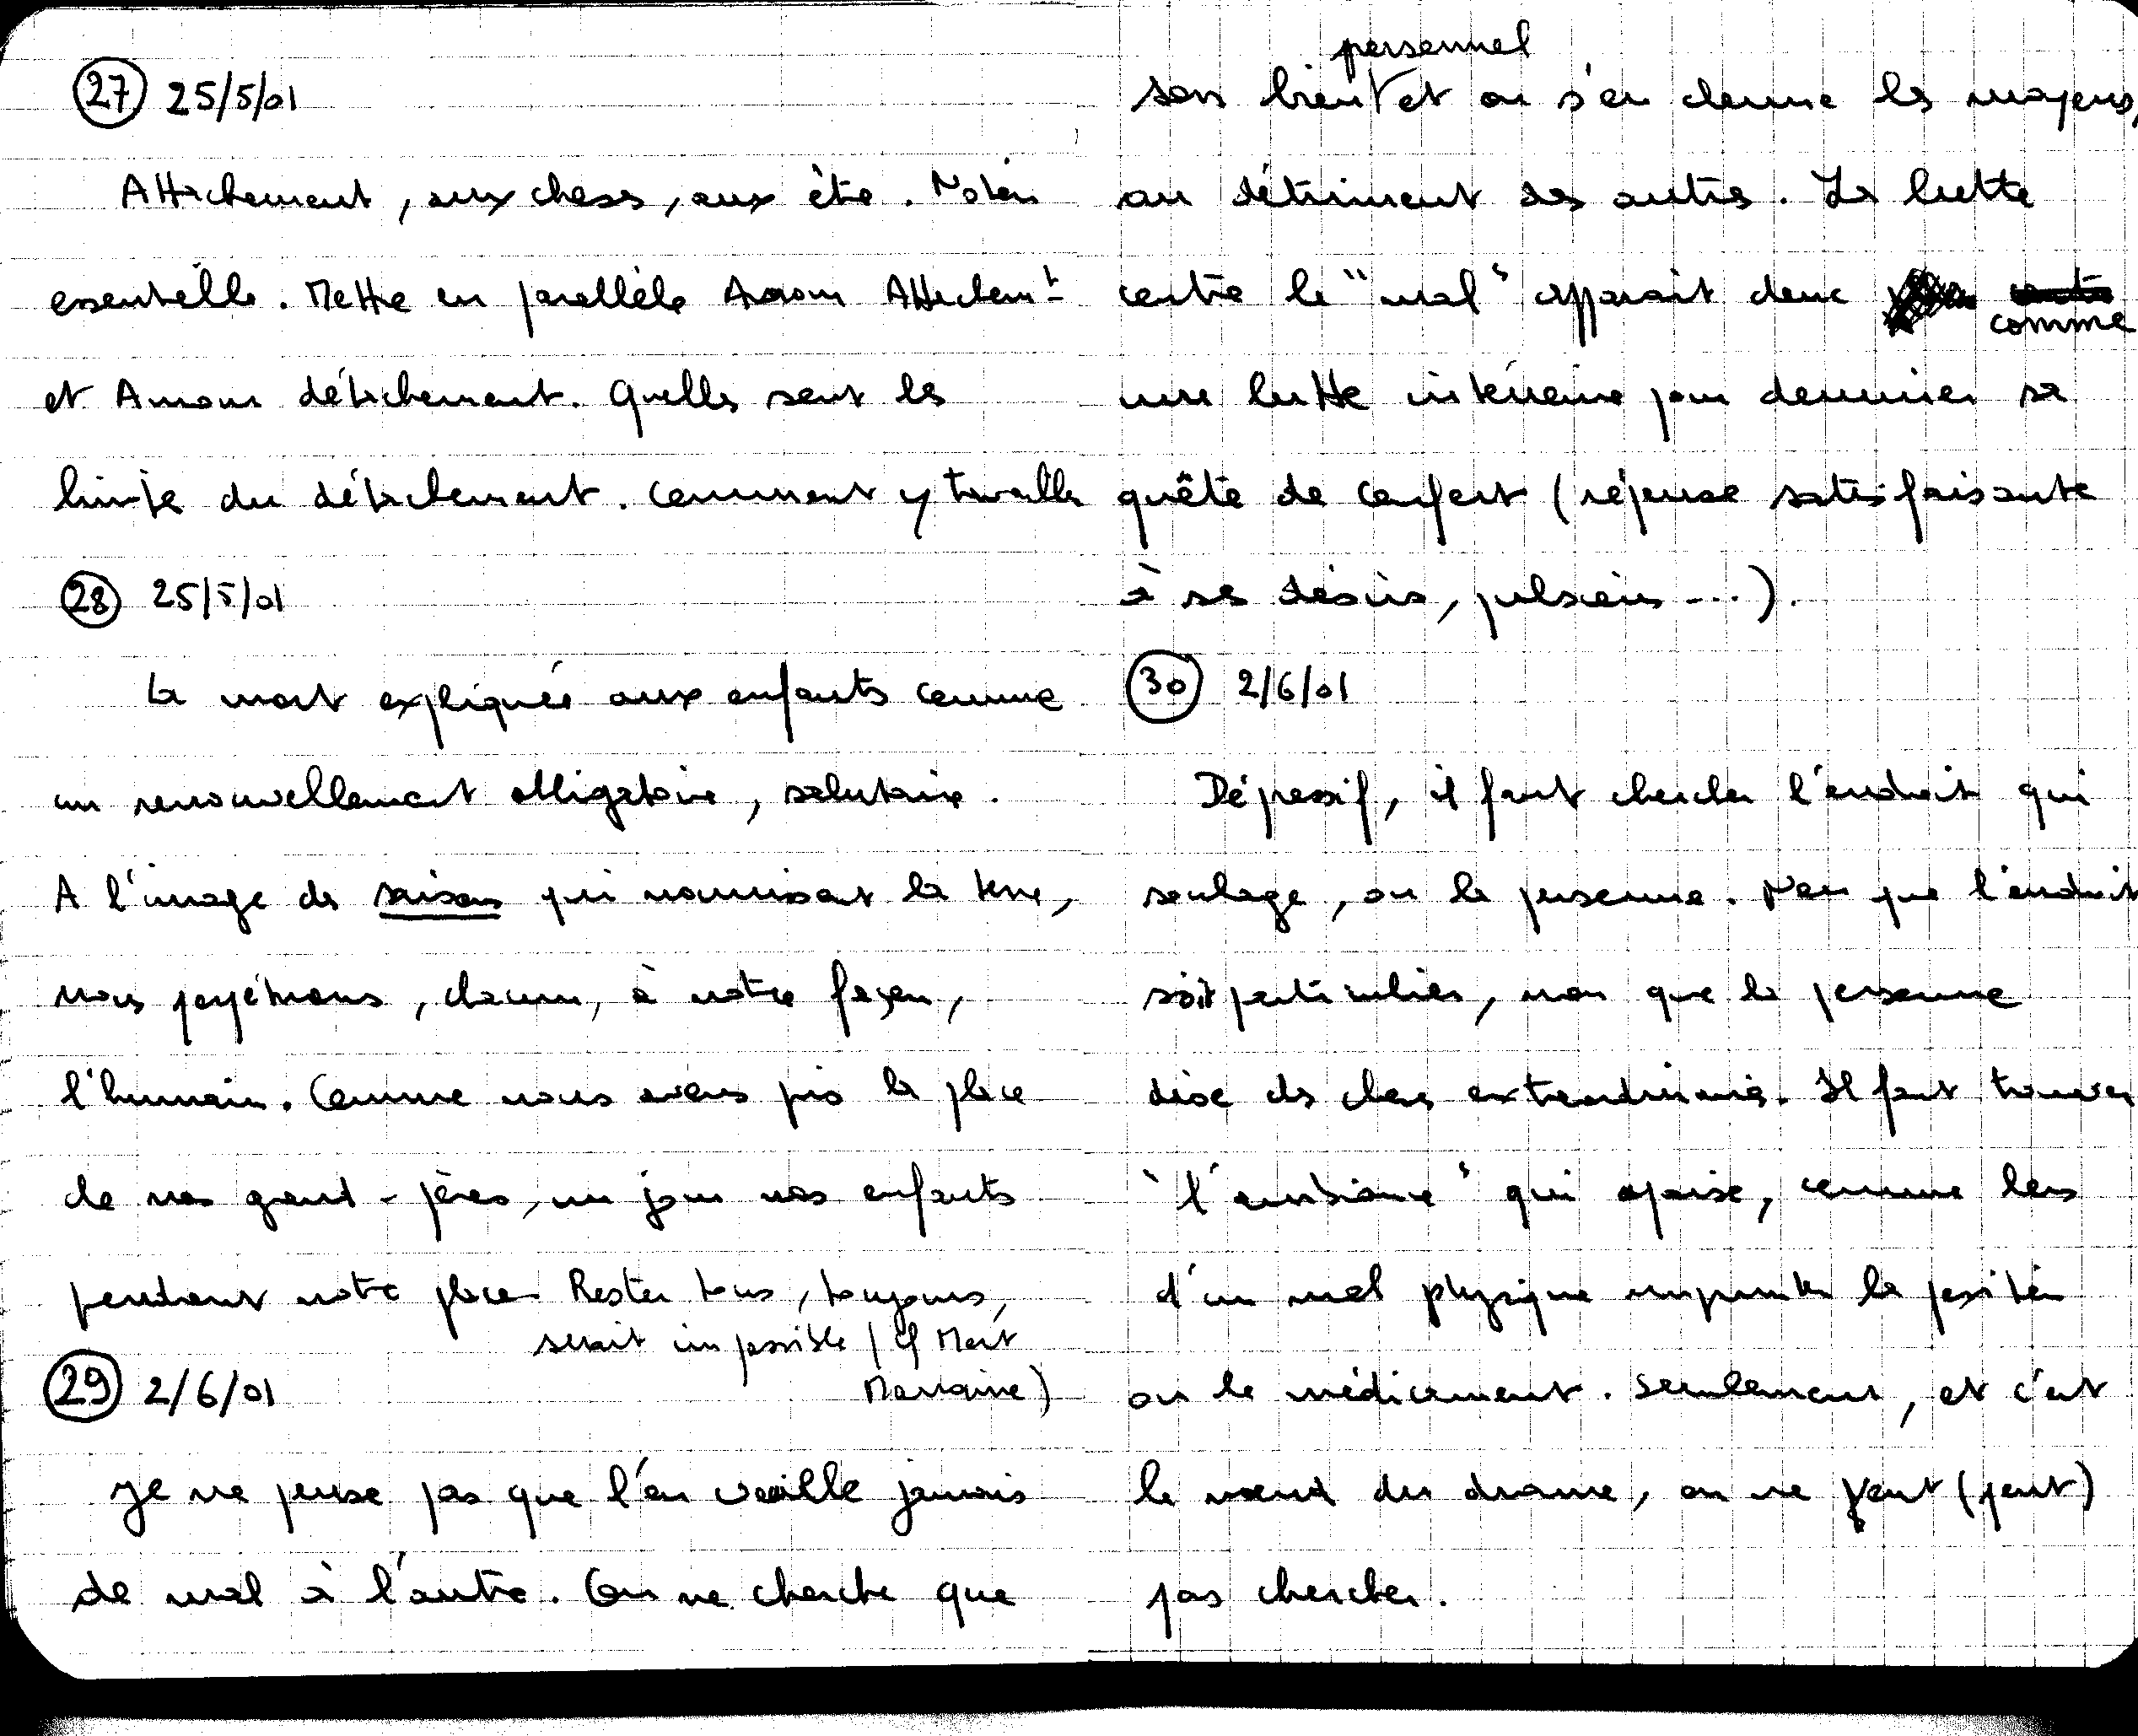 27 25/5/01
Attachement, aux choses, aux êtres. Notion
essentielle. Mettre en parallèle Amour Attachemt
et Amour détachement. Quelles sont les
limites du détachement. Comment y travailler
28 25/5/01
La mort expliquée aux enfants comme
un renouvellement obligatoire, salutaire.
A l'image des saisons qui nourrissent la terre,
nous , chacun, à notre façon,
l'humain. Comme nous avons pris la place
de nos grand-pères, un jour nos enfants
prendront notre place. Rester tous, toujours,
serait impossible (cf Mort
Marraine)
29 2/6/01
Je ne pense pas que l'on veuille jamais
de mal à l'autre. On ne cherche que
personnel
son bien et on s'en donne les moyens,
au détriment des autres. La lutte
contre le "mal" apparait donc
comme
une lutte intérieure pour dominer sa
quête de confort (réponse satisfaisante
à ses désirs, pulsions ...).
30 2/6/01
Dépressif, il faut chercher l'endroit qui
soulage, ou la personne. Non que l'endroit
soit particulier, non que la personne
dise des choses extraordinaires. Il faut trouver
"l'ambiance" qui apaise, comme lors
d'un mal physique la position
ou le médicament. Seulement, et c'est
le nœud du drame, on ne veut (peut)
pas chercher.